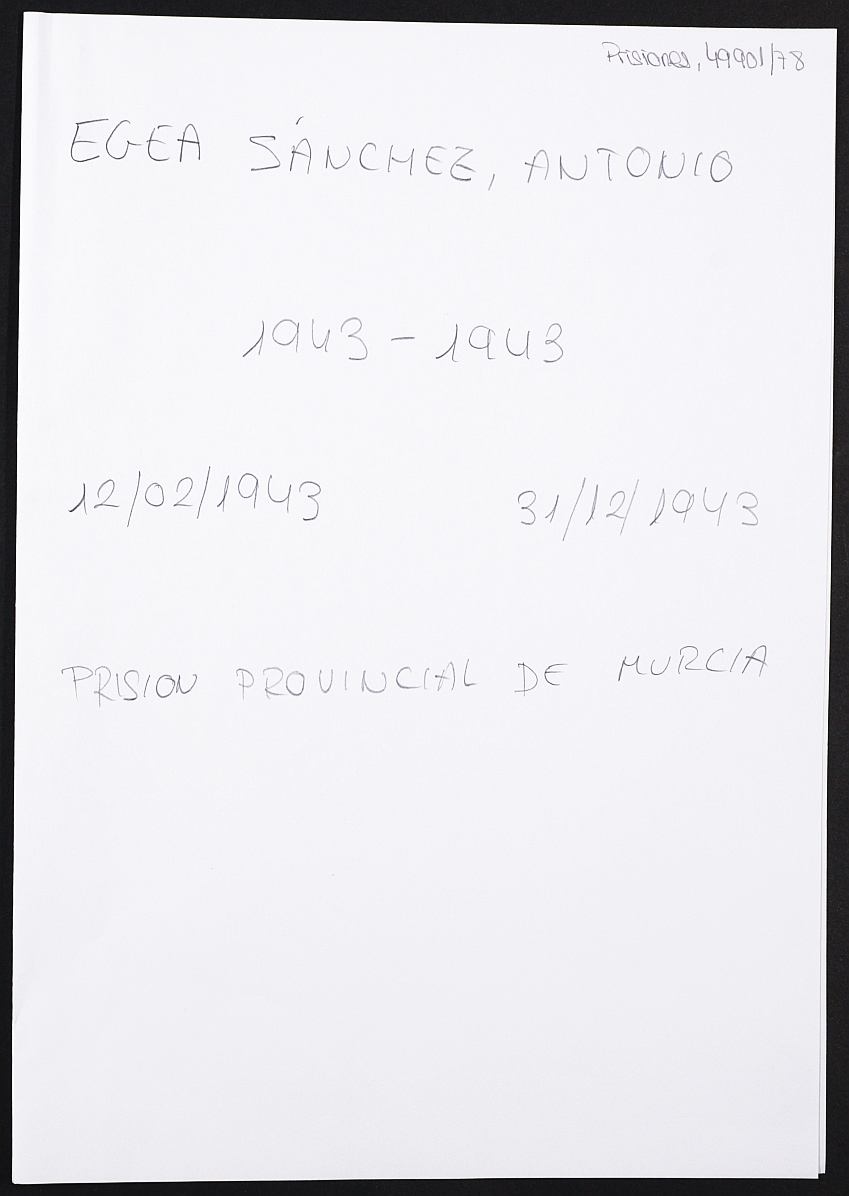 Prisiones, 49901/78
EGEA SÁNCHEZ, ANTONIO
1943 - 1943
12/02/1943 31/12/1943
PRISION PROVINCIAL DE MURCIA